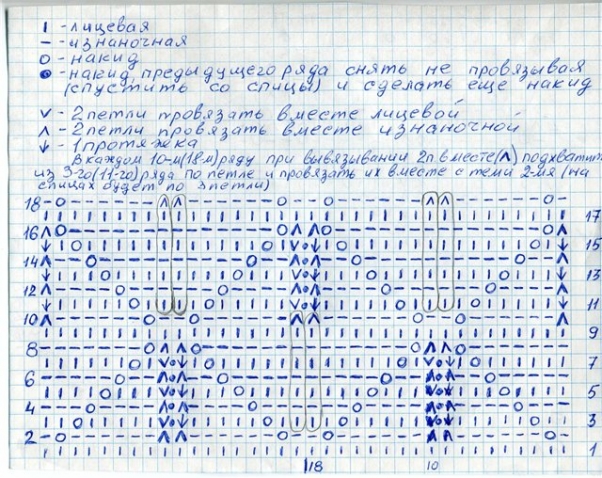 I - лицевая
— - изнаночная
O - накид
● - накид предыдущего ряда снять не провязывая
(спустить со спицы) и сделать еще накид
v - 2 петли провязать вместе лицевой
ʌ - 2 петли провязать вместе изнаночной
↓ - 1 протяжка
В каждом 10-м(18м) ряду при вывязывании 2п вместе(ʌ) подхватить
из 3-го(11-го) ряда по петле и провязать их вместе с теми 2-мя (на
спицах будет по 3 петли)
18
17
16
15
14
13
12
11
10
9
8
7
6
5
4
3
2
1
18 10